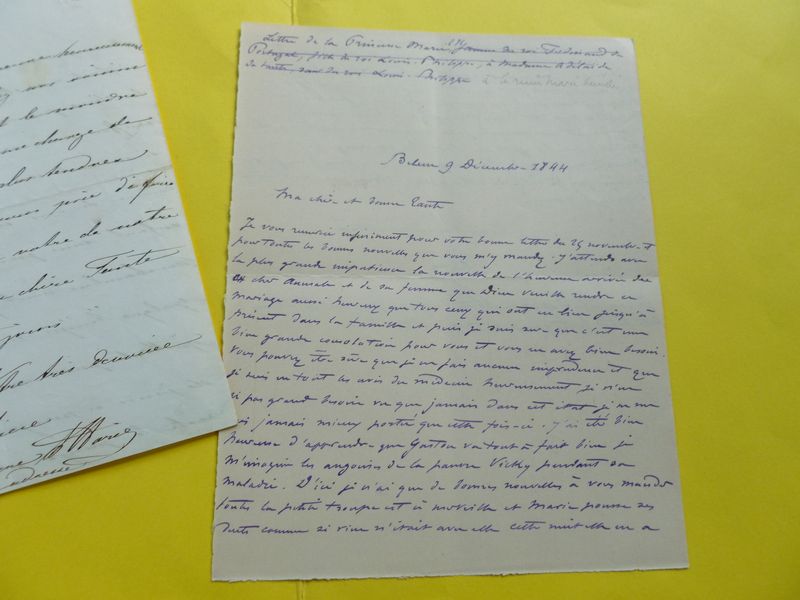 heureusement
nos
et le moindre
change de
plus tendres
prie de faire
notre de notre
chère Tante
jours
Votre très dévouée
nièce
Marie
Lettre de la Princesse Marie, femme du roi Ferdinand de
Portugal, fille du roi Louis Philippe, à Madame Adélaïde
sa tante, sœur du roi Louis-Philippe à la reine Marie Amélie
Belem 9 Décembre 1844
Ma chère et bonne Tante
Je vous remercie infiniment pour votre bonne lettre du 25 novembre et
pour toutes les bonnes nouvelles que vous m'y mandez. J'attends avec
la plus grande impatience la nouvelle de l'heureuse arrivée de
ce cher Aumale et de sa femme que Dieu veuille rendre ce
mariage aussi heureux que tous ceux qui ont eu lieu jusqu'à
présent dans la famille et puis je suis sûre que c'est une
bien grande consolation pour vous et vous en avez bien besoin.
Vous pouvez être sûre que je ne fais aucune imprudence et que
je suis en tout les avis du médecin heureusement je n'en
ai pas grand besoin vu que jamais dans cet état je ne me
suis jamais mieux portée que cette fois-ci. J'ai été bien
heureuse d'apprendre que Gaston va tout à fait bien je
m'imagine les angoisses de la pauvre Vicky pendant sa
maladie. D'ici je n'ai que de bonnes nouvelles à vous mander
toute la petite troupe est à merveille et Marie pousse ses
dents comme si rien n'était avec elle cette nuit elle en a